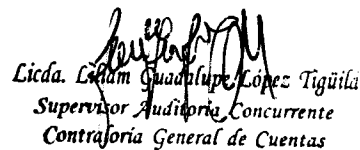 Licda. Liliam Guadalupe López Tigüilá
Supervisor Auditoría Concurrente
Contraloría General de Cuentas